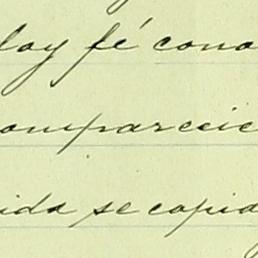 doy fé cono
omparecie
ida se copia